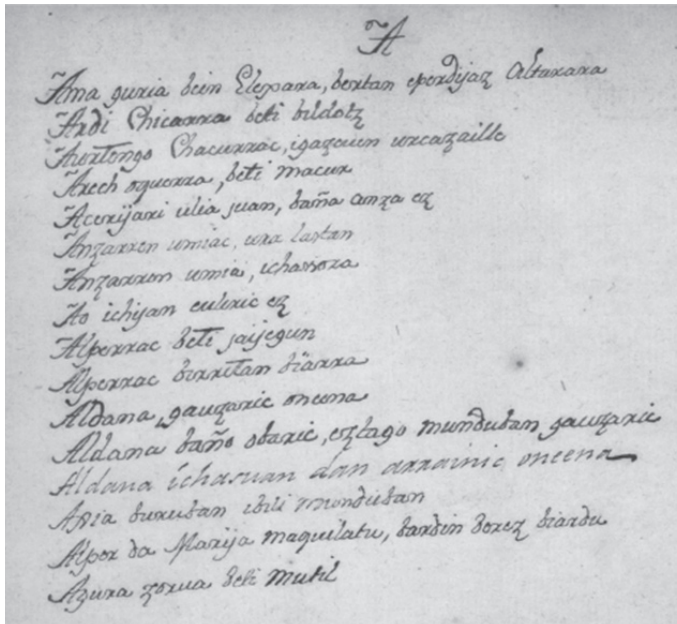 A
Ama guria bein Elexara, bertan eperdijaz Altarara
Ardi Chicarra beti bildotz
Aurtengo Chacurrac, igazcuen urcazaille
Arech oquerra, beti macur
Acerijari ulia juan, baña anza ez
Anzarren umiac, ura lastan
Anzarren umia, ichasora
Ao ichijan euleric ez
Alperrac beti jaijegun
Alperrac birritan biarra
Aldana, gauzaric oneena
Aldana baño obaric, eztago munduban gauzaric
Aldana ichasuan dan arrainic oneena
Asia buruban ibili munduban
Alper da Marija maquilatu, bardin berez biardu
Azura zorua beti mutil